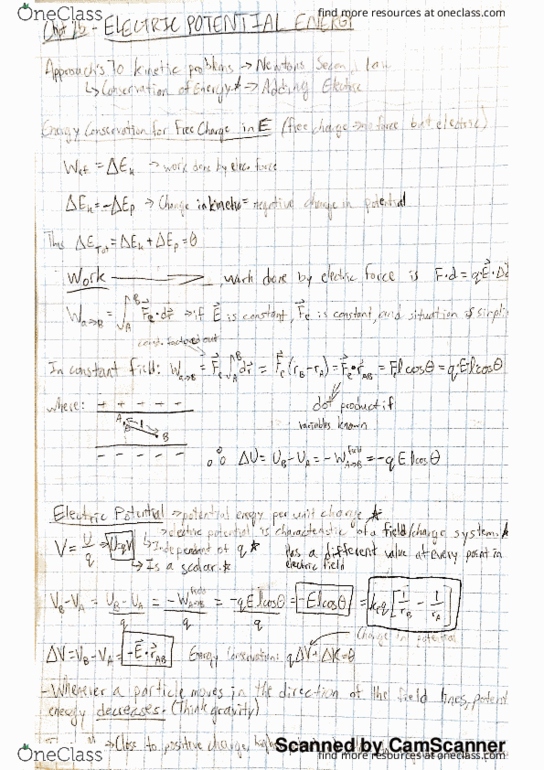 OneClass
find more resources at oneclass.com
ELECTRIC POTENTIAL ENERGY
Approach's To kinetic problems → Newtons Second law
↳ Conservation of Energy* → Adding Electric
Energy Conservation for Free Charge in E (free charge → no force but electric)
= ΔEk → work done by elec force
ΔEk = -ΔEp → Change in kinetic = negative change in potential
Thus ΔETot = ΔEk + ΔEp = 0
Work → work done by electric force is F·d = qE·Δd
WA→B = ∫ Fe·dr → if E is constant, Fe is constant, and situation is simpli
const. factored out
In constant field: WA→B = Fe ∫ dr = Fe (rB - rA) = Fe·rAB = Fl cosθ = qElcosθ
where: + + + + +
dot product if
variables known
A
B
- - - - -
∴ ΔU = UB - UA = -W A→B = -qElcosθ
Electric Potential → potential energy per unit charge *
→ electric potential is characteristic of a field/charge system. *
V = U/q → U=qV ↳ Independent of q * Has a different value at every point in
electric field
↳ Is a scalar. *
VB - VA = UB - UA / q = -WA→B / q = -qElcosθ / q = -Elcosθ = keq [1/rB - 1/rA]
Change in potential
ΔV = VB - VA = -E·rAB Energy Conservation: qΔV + ΔK = 0
- Whenever a particle moves in the direction of the field lines, potent
energy decreases. (Think gravity)
→ Close to positive charge,
Scanned by CamScanner
OneClass
find more resources at oneclass.com